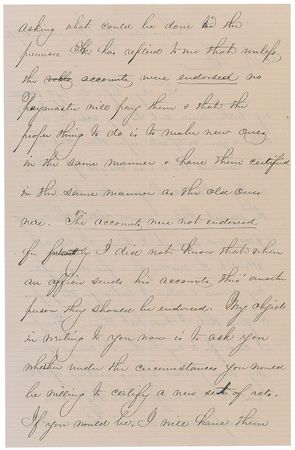 asking what could be done in the
premises. He has replied to me that unless
the accounts were endorsed no
Paymaster will pay them & that the
proper thing to do is to make new ones
in the same manner & have them certified
in the same manner as the old ones
were. The accounts were not endorsed
for I did not know that when
an officer sends his accounts thro' another
person they should be endorsed. My object
in writing to you now is to ask you
whether under the circumstances you would
be willing to certify a new set of accts.
If you would be, I will have them